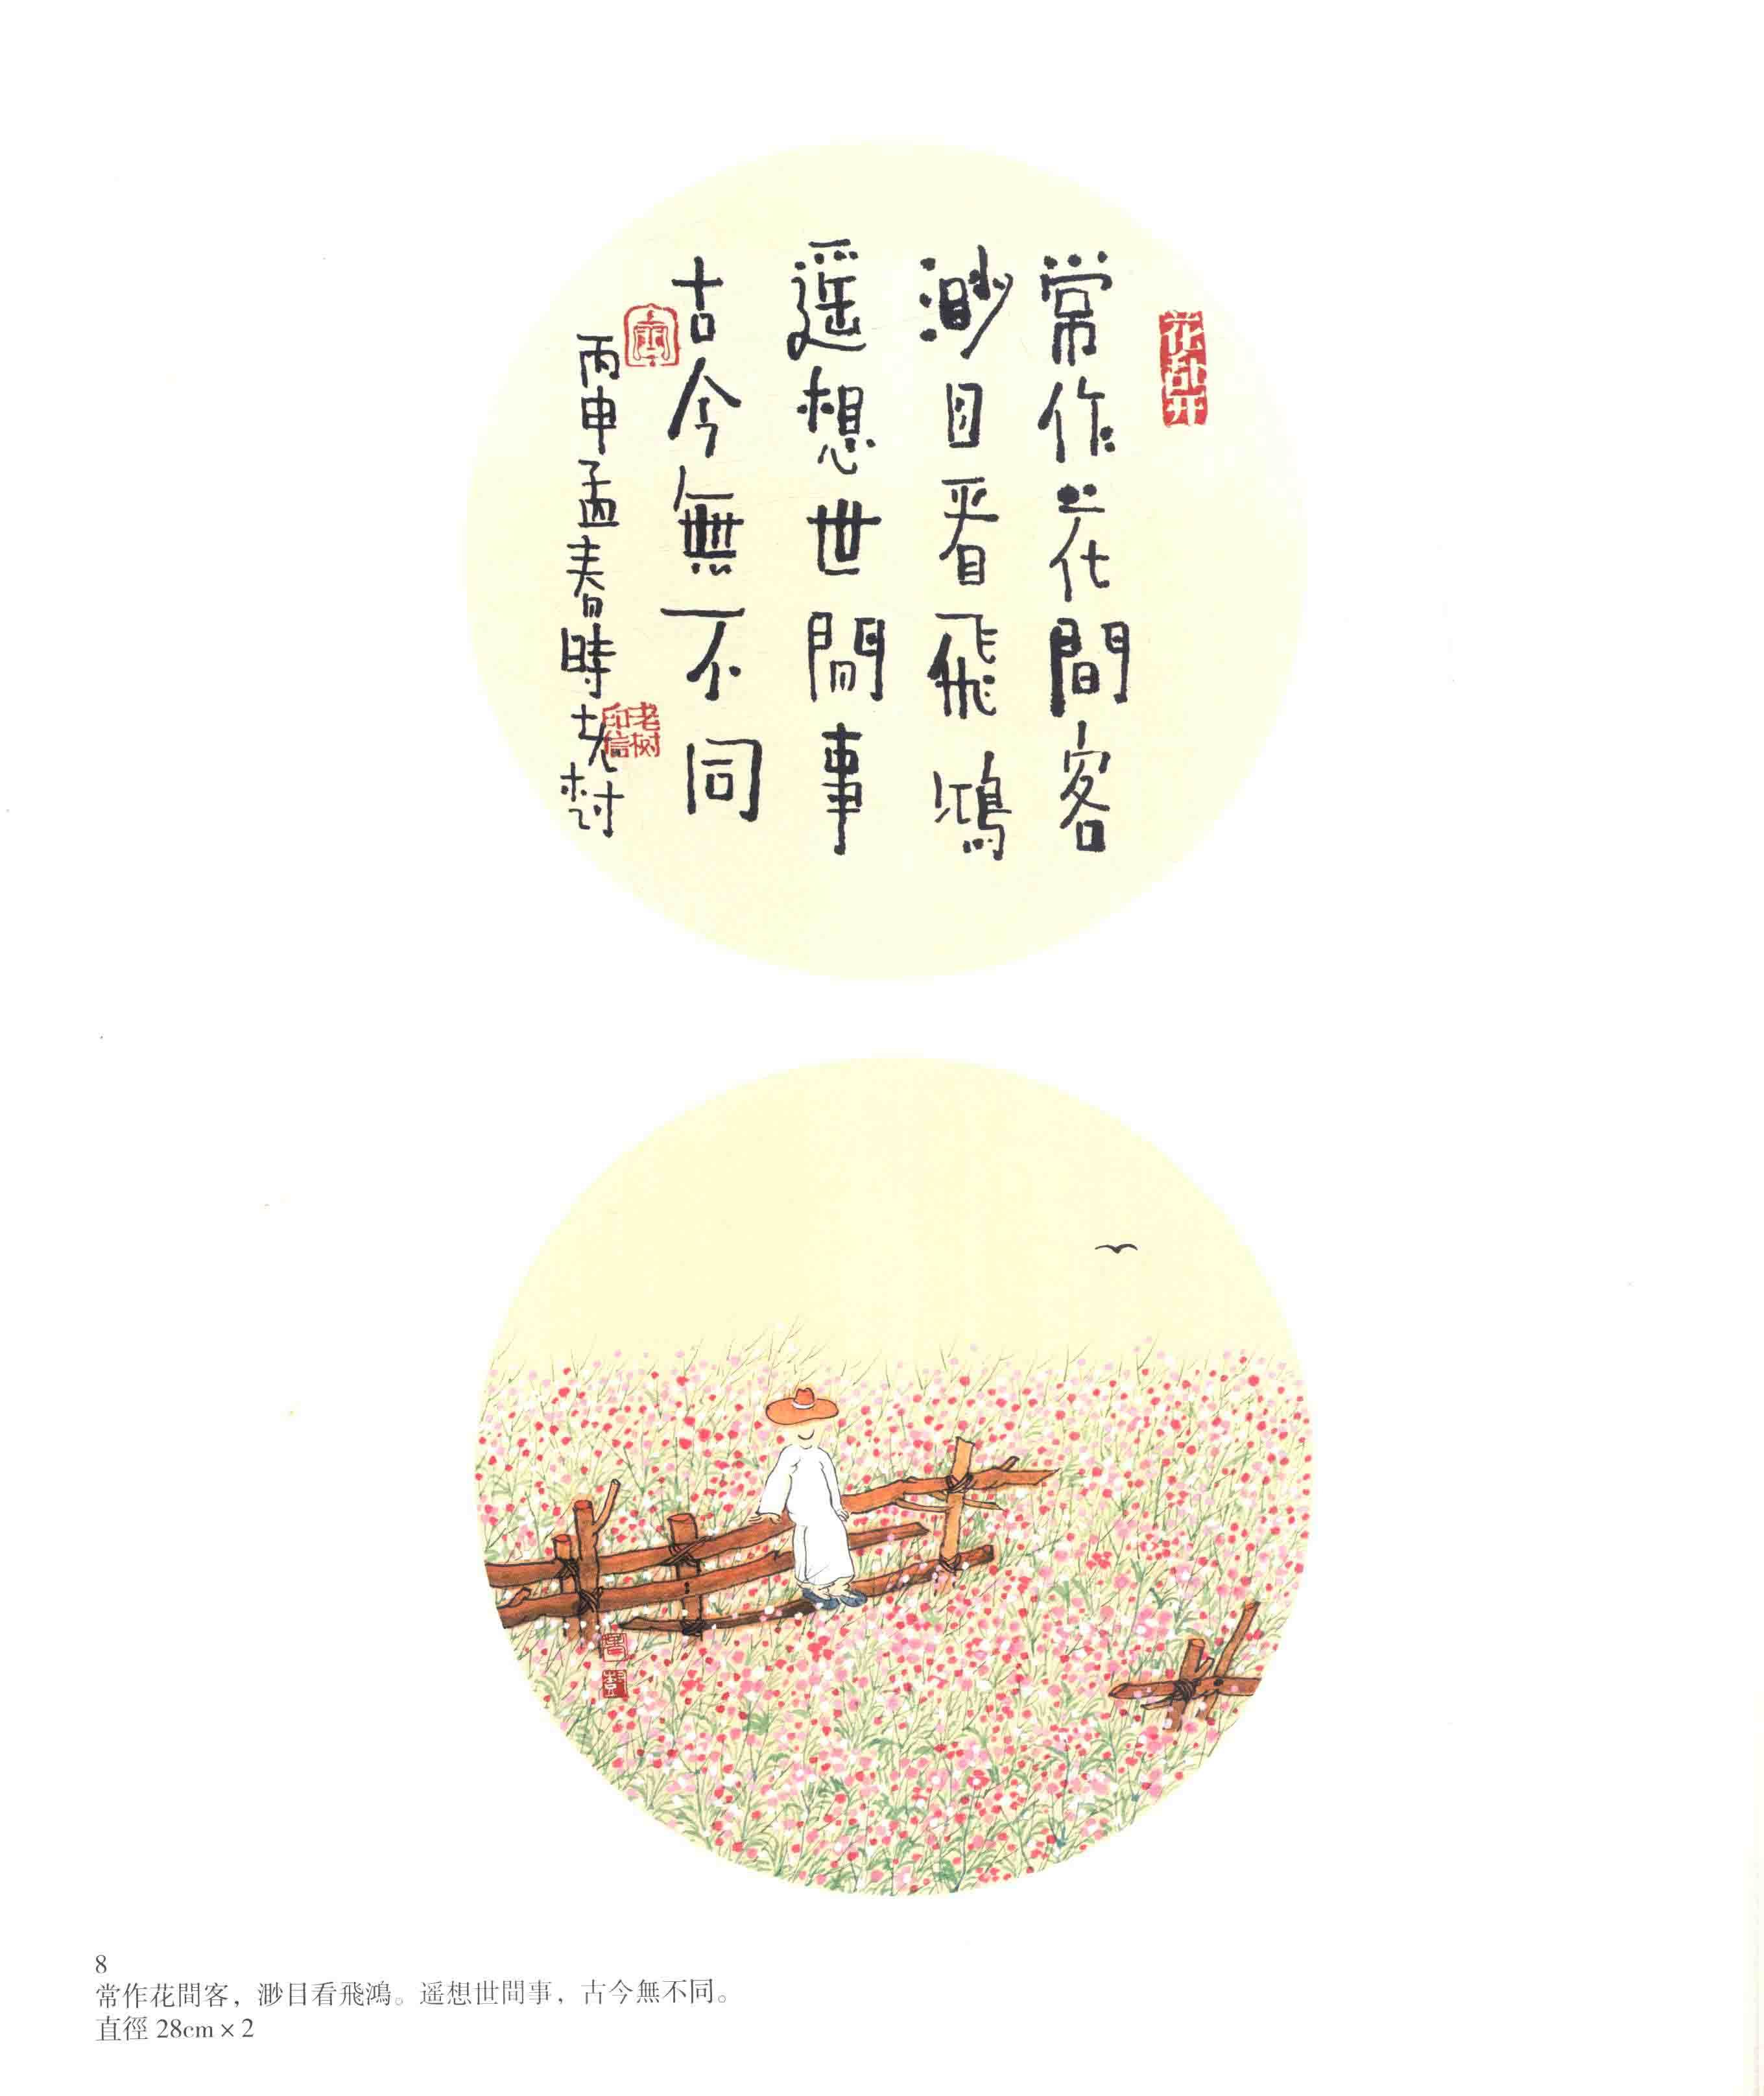 花乱开
常作花間客
渺目看飛鴻
遥想世間事
古今無不同
丙申孟春時老樹
老树
印信
8
常作花間客，渺目看飛鴻。遥想世間事，古今無不同。
直徑 28cm × 2